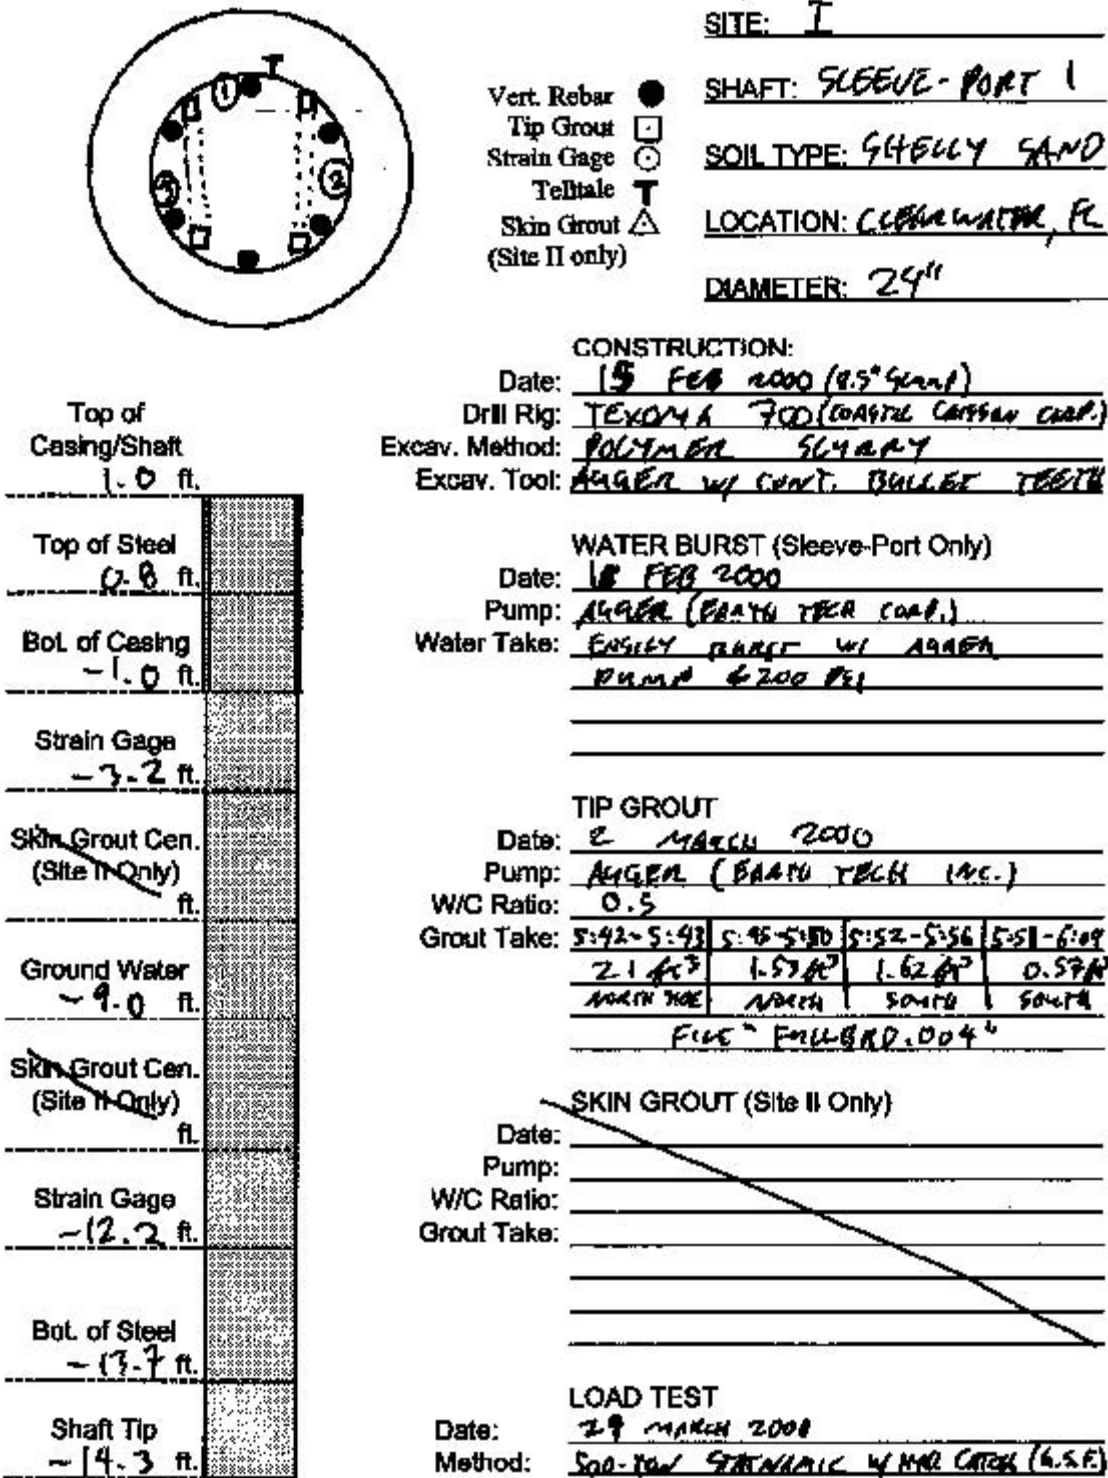 SITE: I
SHAFT: SLEEVE-PORT 1
SOIL TYPE: SHELLY SAND
LOCATION: CLEARWATER, FL
DIAMETER: 24"
T
1
2
3
Vert. Rebar
Tip Grout
Strain Gage
Telltale T
Skin Grout
(Site II only)
CONSTRUCTION:
Date: 15 FEB 2000 (8.5" SLUMP)
Drill Rig: TEXOMA 700 (COASTAL CAISSON CORP.)
Excav. Method: POLYMER SLURRY
Excav. Tool: AUGER W/ CONT. BULLET TEETH
WATER BURST (Sleeve-Port Only)
Date: 18 FEB 2000
Pump: AUGER (EARTH TECH CORP.)
Water Take: EASILY BURST W/ AUGER
PUMP 200 PSI
TIP GROUT
Date: 2 MARCH 2000
Pump: AUGER (EARTH TECH INC.)
W/C Ratio: 0.5
Grout Take: 5:42-5:43 5:52-5:56
2.1 ft³ 1.62 ft³ 0.57 ft³
NORTH NORTH SOUTH SOUTH
FILE .004"
SKIN GROUT (Site II Only)
Date:
Pump:
W/C Ratio:
Grout Take:
LOAD TEST
Date: 29 MARCH 2000
Method: 500-TON STATNAMIC W/ CATCH (G.S.F.)
Top of
Casing/Shaft
1.0 ft.
Top of Steel
0.8 ft.
Bot. of Casing
-1.0 ft.
Strain Gage
-3.2 ft.
Skin Grout Cen.
(Site II Only)
ft.
Ground Water
-9.0 ft.
Skin Grout Cen.
(Site II Only)
ft.
Strain Gage
-12.2 ft.
Bot. of Steel
-13.7 ft.
Shaft Tip
-14.3 ft.